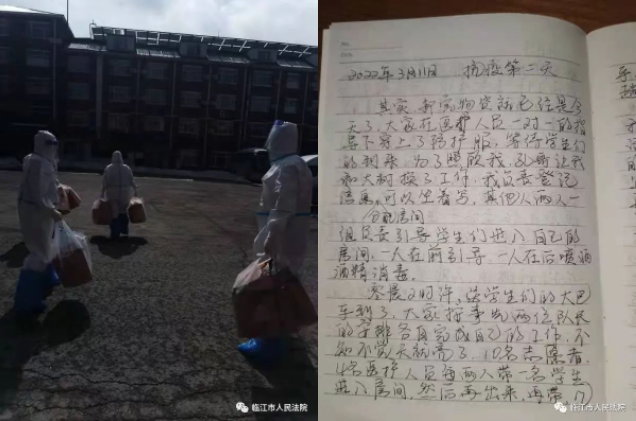 2022年3月11日 抗疫第二天
天了,大家在医护人员一对一的指
导下穿上了防护服,等待学生们
的到来,为了照顾我,
和大树换了工作,我负责登记
信息,可以坐着写,其他人两人一
分配房间
组负责引导学生们进入自己的
房间,一人在前引导,一人在后喷洒
酒精消毒。
零晨2时许,送学生们的大巴
车到了,大家按事
的安排各自完成自己的工作,不
知不觉天就亮了,10名志愿者,
4名医护人员每两人带一名学生
进入房间,然后再出来,再带
临江市人民法院
临江市人民法院